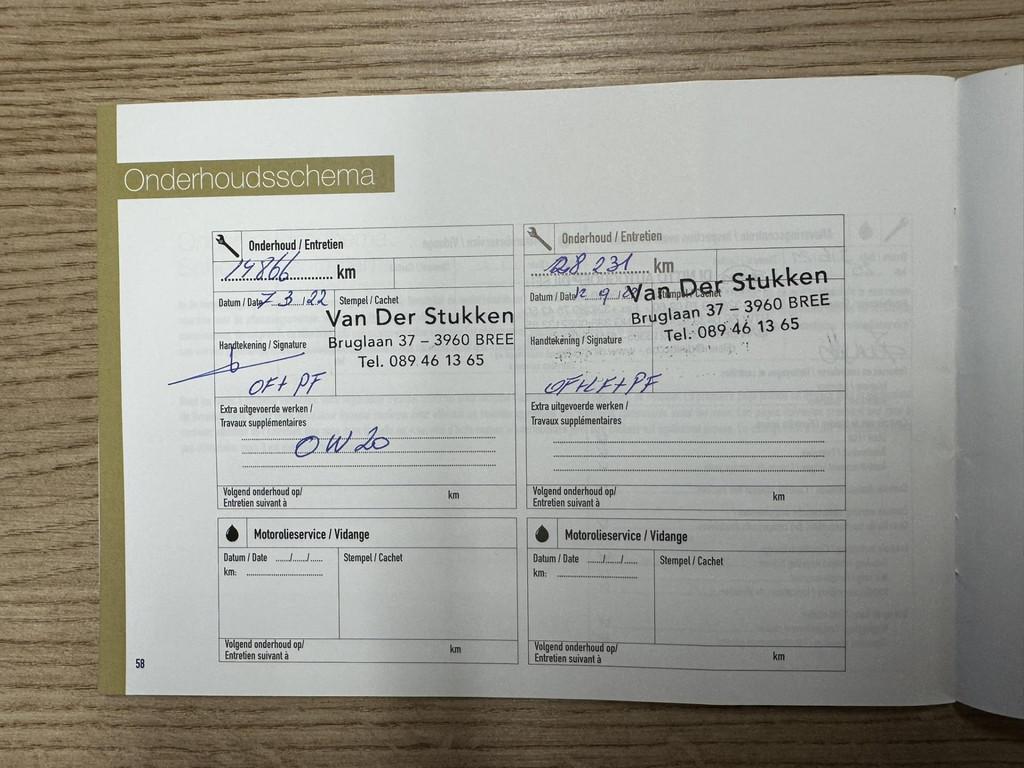 Onderhoudsschema
Onderhoud / Entretien
19866 km
Datum / Date 7 3 /22 Stempel / Cachet
Van Der Stukken
Bruglaan 37 – 3960 BREE
Tel. 089 46 13 65
Handtekening / Signature
OF+ PF
Extra uitgevoerde werken /
Travaux supplémentaires
OW20
Volgend onderhoud op/
Entretien suivant à km
Onderhoud / Entretien
28 231 km
Datum / Date 12 9 / Stempel / Cachet
Van Der Stukken
Bruglaan 37 – 3960 BREE
Tel: 089 46 13 65
Handtekening / Signature
OF+LF+PF
Extra uitgevoerde werken /
Travaux supplémentaires
Volgend onderhoud op/
Entretien suivant à km
Motorolieservice / Vidange
Datum / Date ..../..../.... Stempel / Cachet
km:
Volgend onderhoud op/
Entretien suivant à km
Motorolieservice / Vidange
Datum / Date ..../..../.... Stempel / Cachet
km:
Volgend onderhoud op/
Entretien suivant à km
58